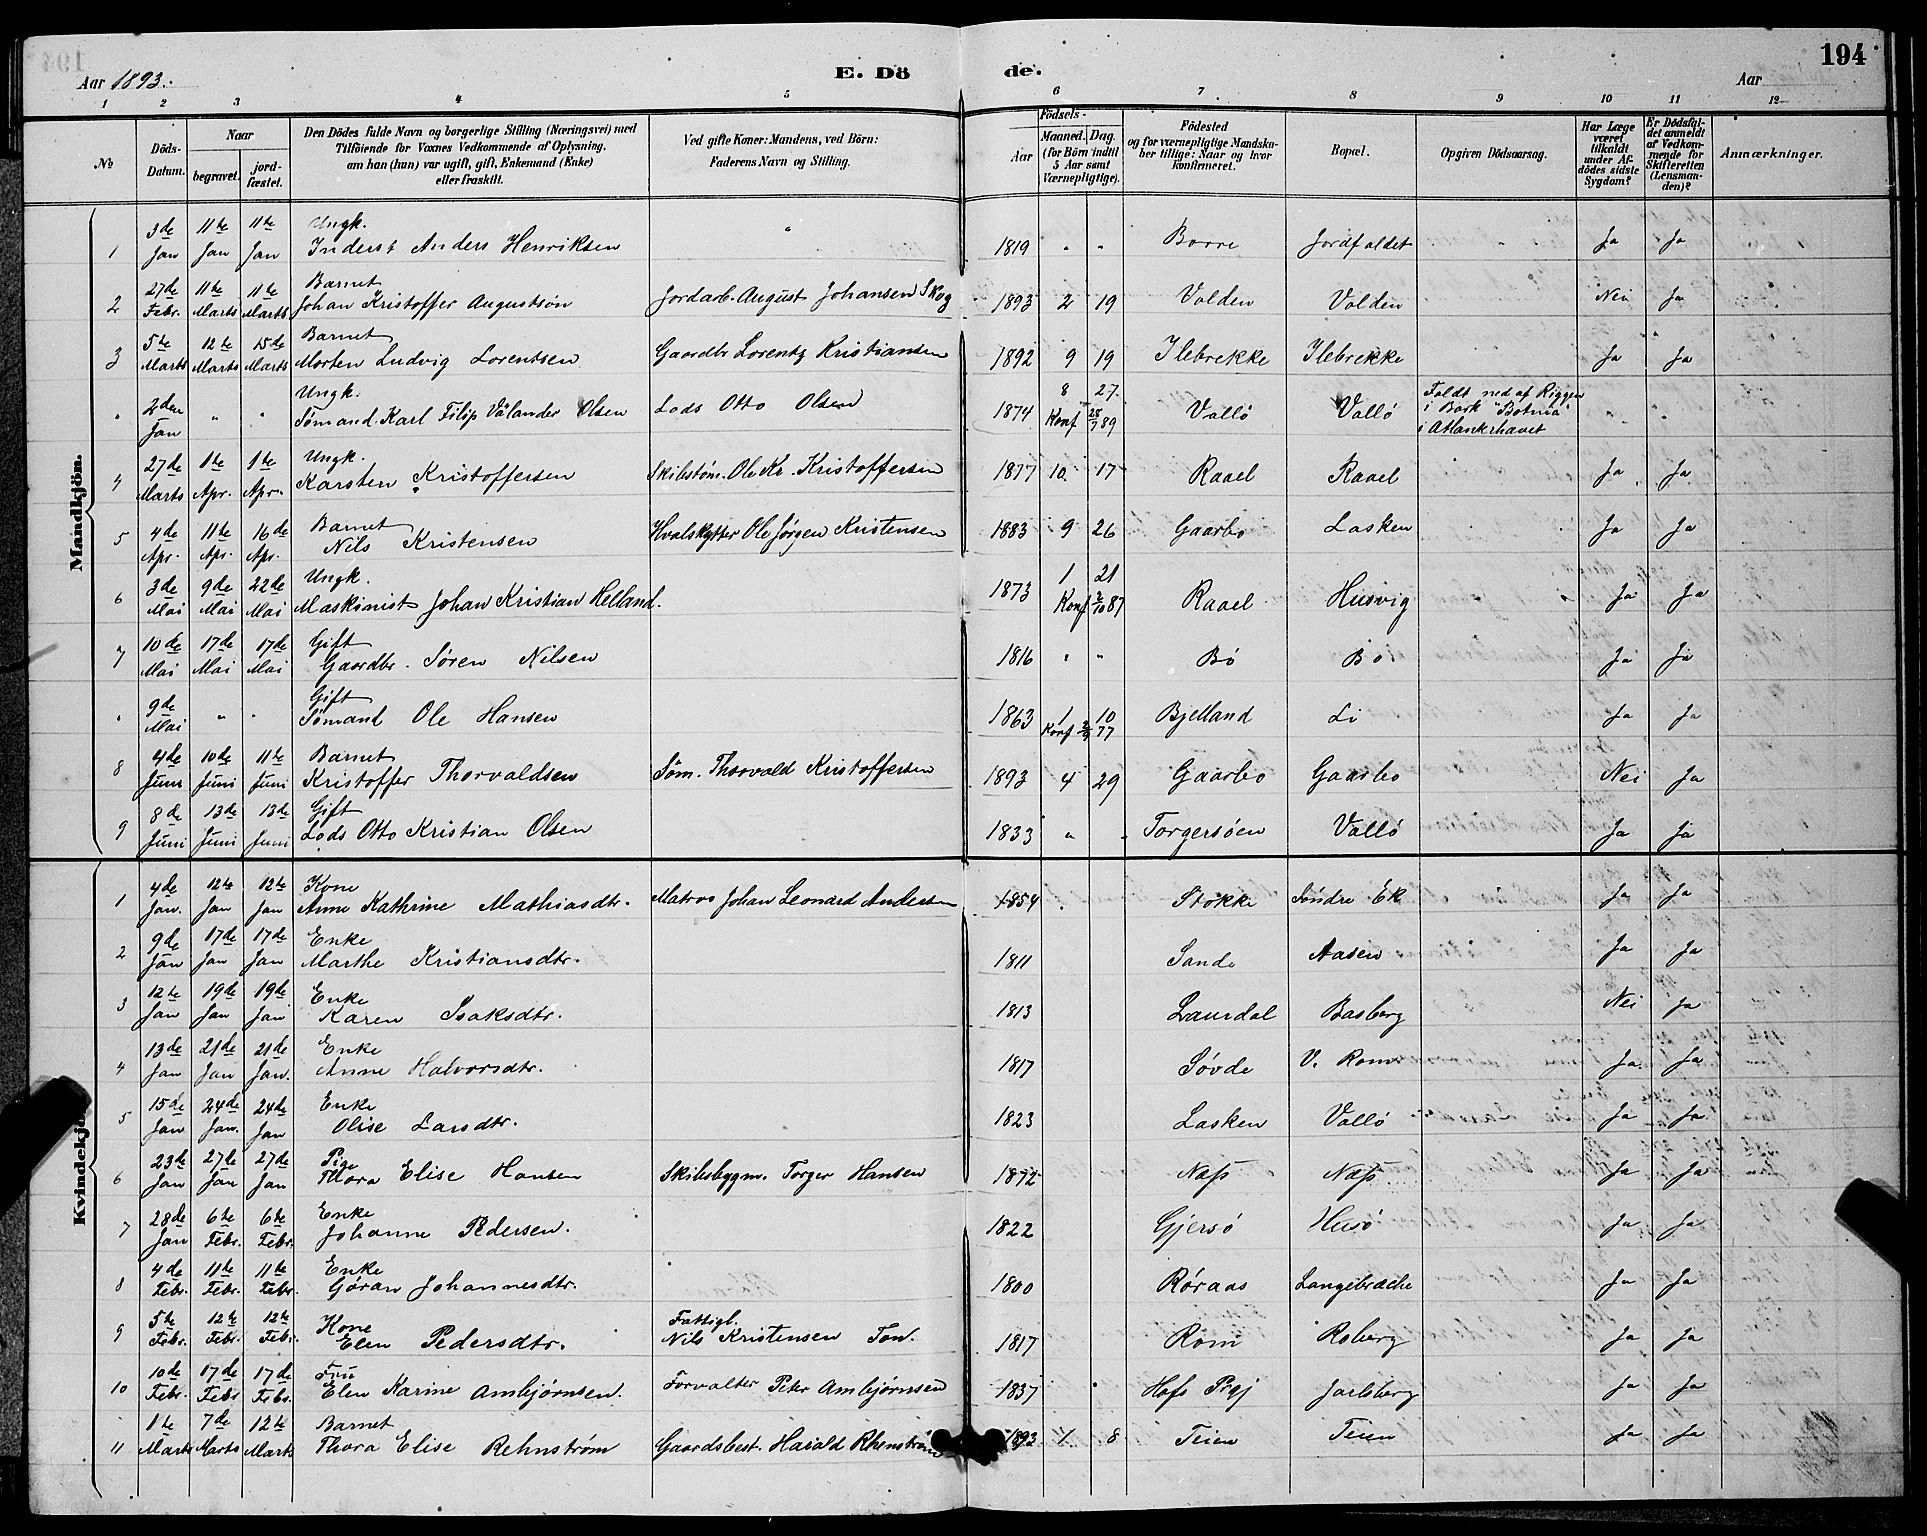 194
Aar 1893.
E. Dö de.
Aar
1 2 3 4 5 6 7 8 9 10 11 12
№
Döds-Datum.
Naar
begravet.
jord-fæstet.
Den Dödes fulde Navn og borgerlige Stilling (Næringsvei) med
Tilföiende for Voxnes Vedkommende af Oplysning,
om han (hun) var ugift, gift, Enkemand (Enke)
eller fraskilt.
Ved gifte Koner: Mandens, ved Börn:
Faderens Navn og Stilling.
Födsels-
Aar
Maaned. Dag.
(for Börn indtil
5 Aar samt
Værnepligtige).
Födested
og for værnepligtige Mandska-
ber tillige: Naar og hvor
konfirmeret.
Bopæl.
Opgiven Dödsaarsag.
Har Læge
været
tilkaldt
under Af-
dödes sidste
Sygdom?
Er Dödsfal-
det anmeldt
af Vedkom-
mende for
Skifteretten
(Lensman-
den)?
Anmærkninger.
Mandkjön.
1 3de Jan 11te Jan 11te Jan Ungk. Inderst Anders Henriksen " 1819 " " Borre Jordfaldet " Ja Ja
2 27de Febr. 11te Marts 11te Marts Barnet Johan Kristoffer Augustsön Jordarb. August Johansen Skog 1893 2 19 Valden Valden Nei Ja
3 5te Marts 12te Marts 15de Marts Barnet Morten Ludvig Lorentsen Gaardbr Lorentz Kristiansen 1892 9 19 Ilebrekke Ilebrekke Ja Ja
" 2den Jan " " Ungk. Sømand Karl Filip Välander Olsen Lods Otto Olsen 1874 8 27 Konf 28/7 89 Vallö Vallö Faldt ned af Riggen i Bark "Botnia" i Atlanterhavet " "
4 27de Marts 1te Apr. 1te Apr. Ungk. Karsten Kristoffersen Skibstøm. Ole Kr. Kristoffersen 1877 10 17 Raael Raael Ja Ja
5 4de Apr. 11te Apr. 16de Apr. Barnet Nils Kristensen Hvalskytter Ole Jørgen Kristensen 1883 9 26 Gaarbo Lasken Ja Ja
6 3de Mai 9de Mai 22de Mai Ungk. Maskinist Johan Kristian Helland. 1873 1 21 Konf 2/10 87 Raael Husvig Ja Ja
7 10de Mai 17de Mai 17de Mai Gift Gaardbr. Søren Nilsen 1816 " " Bö Bö Ja Ja
" 9de Mai " " Gift Sømand Ole Hansen 1863 1 10 Konf 77 Bjelland Li Ja Ja
8 4de Juni 10de Juni 11te Juni Barnet Kristoffer Thorvaldsen Søm. Thorvald Kristoffersen 1893 4 29 Gaarbo Gaarbo Nei Ja
9 8de Juni 13de Juni 13de Juni Gift Lods Otto Kristian Olsen 1833 " " Torgersøen Vallö Ja Ja
Kvindekjön.
1 4de Jan. 12te Jan 12te Jan Kone Anne Kathrine Mathiasdtr. Matros Johan Leonard Andersen 1854 Stokke Søndre Ek Ja Ja
2 9de Jan 17de Jan 17de Jan Enke Marthe Kristiansdtr. 1811 Sande Aasen Ja Ja
3 12te Jan 19de Jan 19de Jan Enke Karen Isaksdtr. 1813 Laurdal Basberg Nei Ja
4 13de Jan 21de Jan 21de Jan. Enke Anne Halvorsdtr. 1817 Søvde V. Rom Ja Ja
5 15de Jan 24de Jan. 24de Jan Enke Olise Larsdtr. 1823 Lasken Vallö Ja Ja
6 23de Jan 27de Jan 27de Jan Pige Thora Elise Hansen Skibsbygm. Torger Hansen 1872 Næss Næss Ja Ja
7 28de Jan 6te Febr. 6te Febr. Enke Johanne Pedersen. 1822 Gjersö Husö Ja Ja
8 4de Febr. 11te Febr. 11te Febr. Enke Gøran Johannesdtr. 1800 Røraas Langebræche Ja Ja
9 5te Febr. 12te Febr. 12te Febr. Kone Elen Pedersdtr. Fattigl. Nils Kristensen Ton. 1817 Rom Roberg Ja Ja
10 10de Febr. 17de Febr. 17de Febr. Frü Elen Karine Ambjørnsen. Forvalter Peter Ambjørnsen 1837 Hofs Prgj Jarlsberg Ja Ja
11 1te Marts 7de Marts 12te Marts Barnet Thora Elise Rehnstrøm Gaardsbest. Harald Rhenstrøm 1893 1 8 Teien Teien Ja Ja